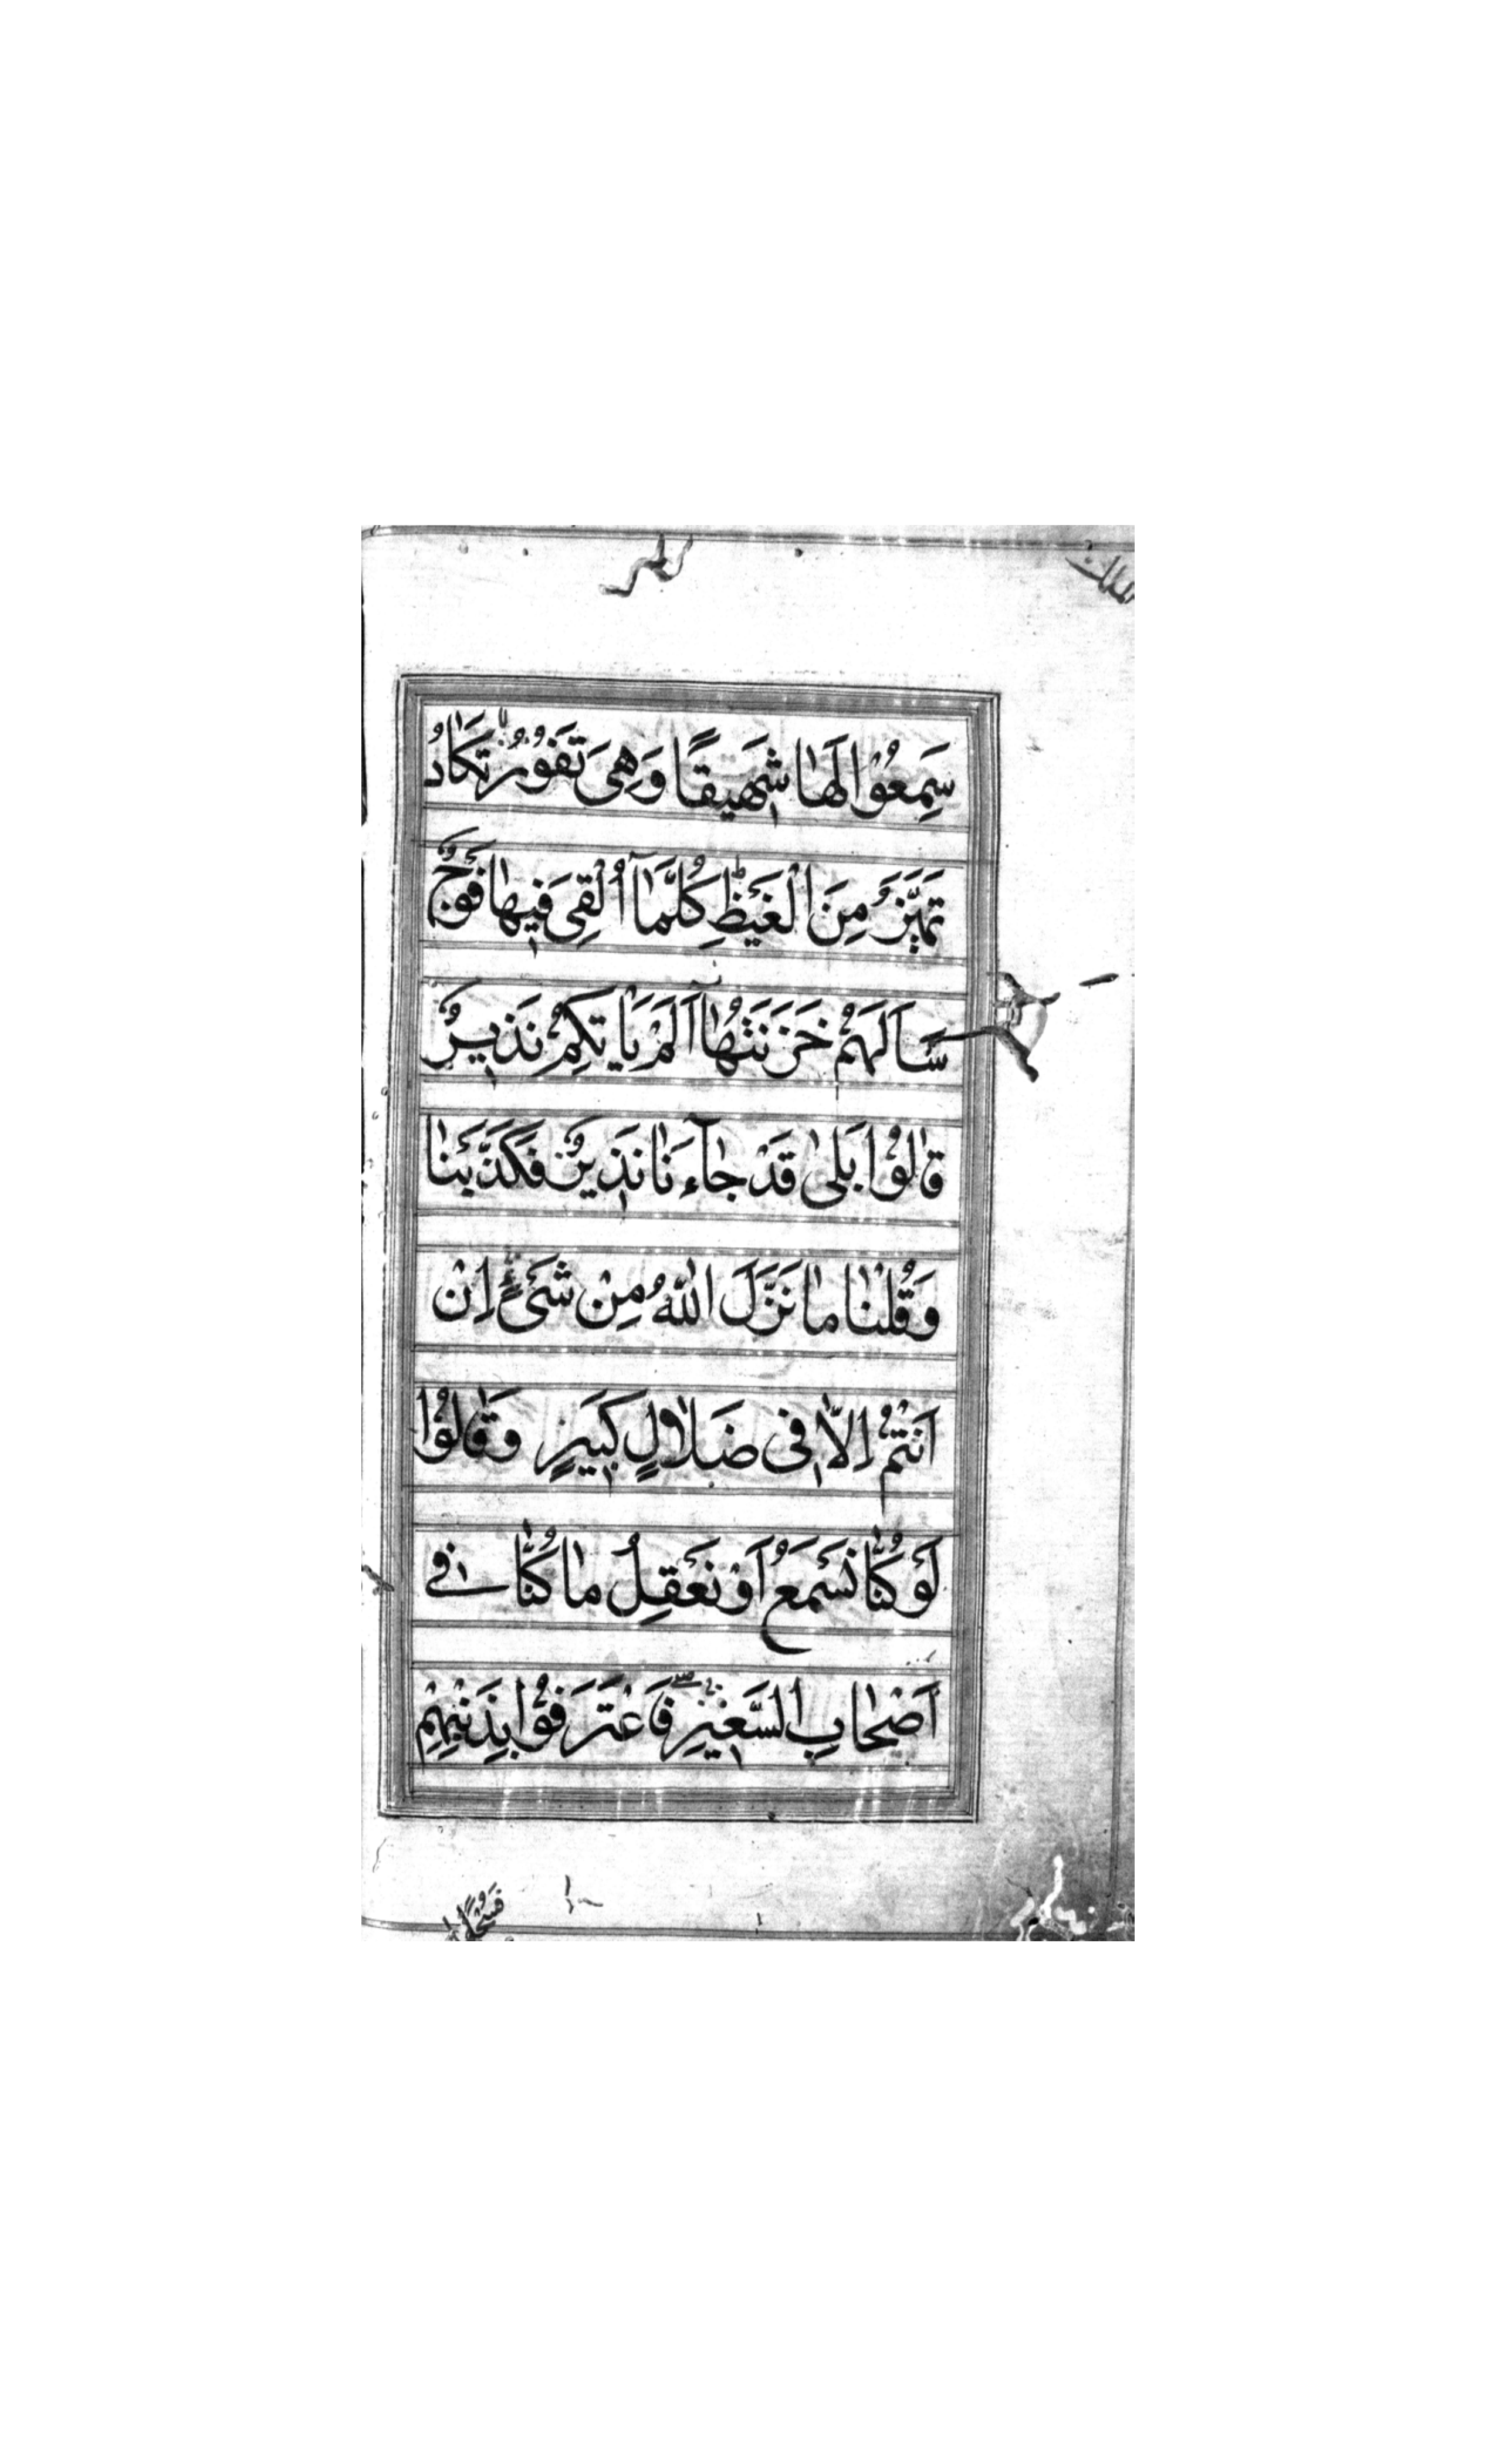 الملك
سَمِعُوْا لَهٰا شَهيقًا وَهِىَ تَفُوْرُ تَكٰادُ
تَمَيَّزُ مِنَ الْغَيْظِ كُلَّمٰآ اُلْقِىَ فيهٰا فَوْجٌ
سَاَلَهُمْ خَزَنَتُهٰآ اَلَمْ يَاْتِكُمْ نَذيرٌ
قٰالُوْا بَلىٰ قَدْ جٰآءَنٰا نَذيرٌ فَكَذَّبْنٰا
وَقُلْنٰا مٰا نَزَّلَ اللّٰهُ مِنْ شَىْءٍ اِنْ
اَنْتُمْ اِلّٰا فى ضَلٰالٍ كَبيرٍ وَقٰالُوْا
لَوْ كُنّٰا نَسْمَعُ اَوْ نَعْقِلُ مٰا كُنّٰا فى
اَصْحٰابِ السَّعيرِ فَاعْتَرَفُوْا بِذَنْبِهِمْ
فَسُحْقًا